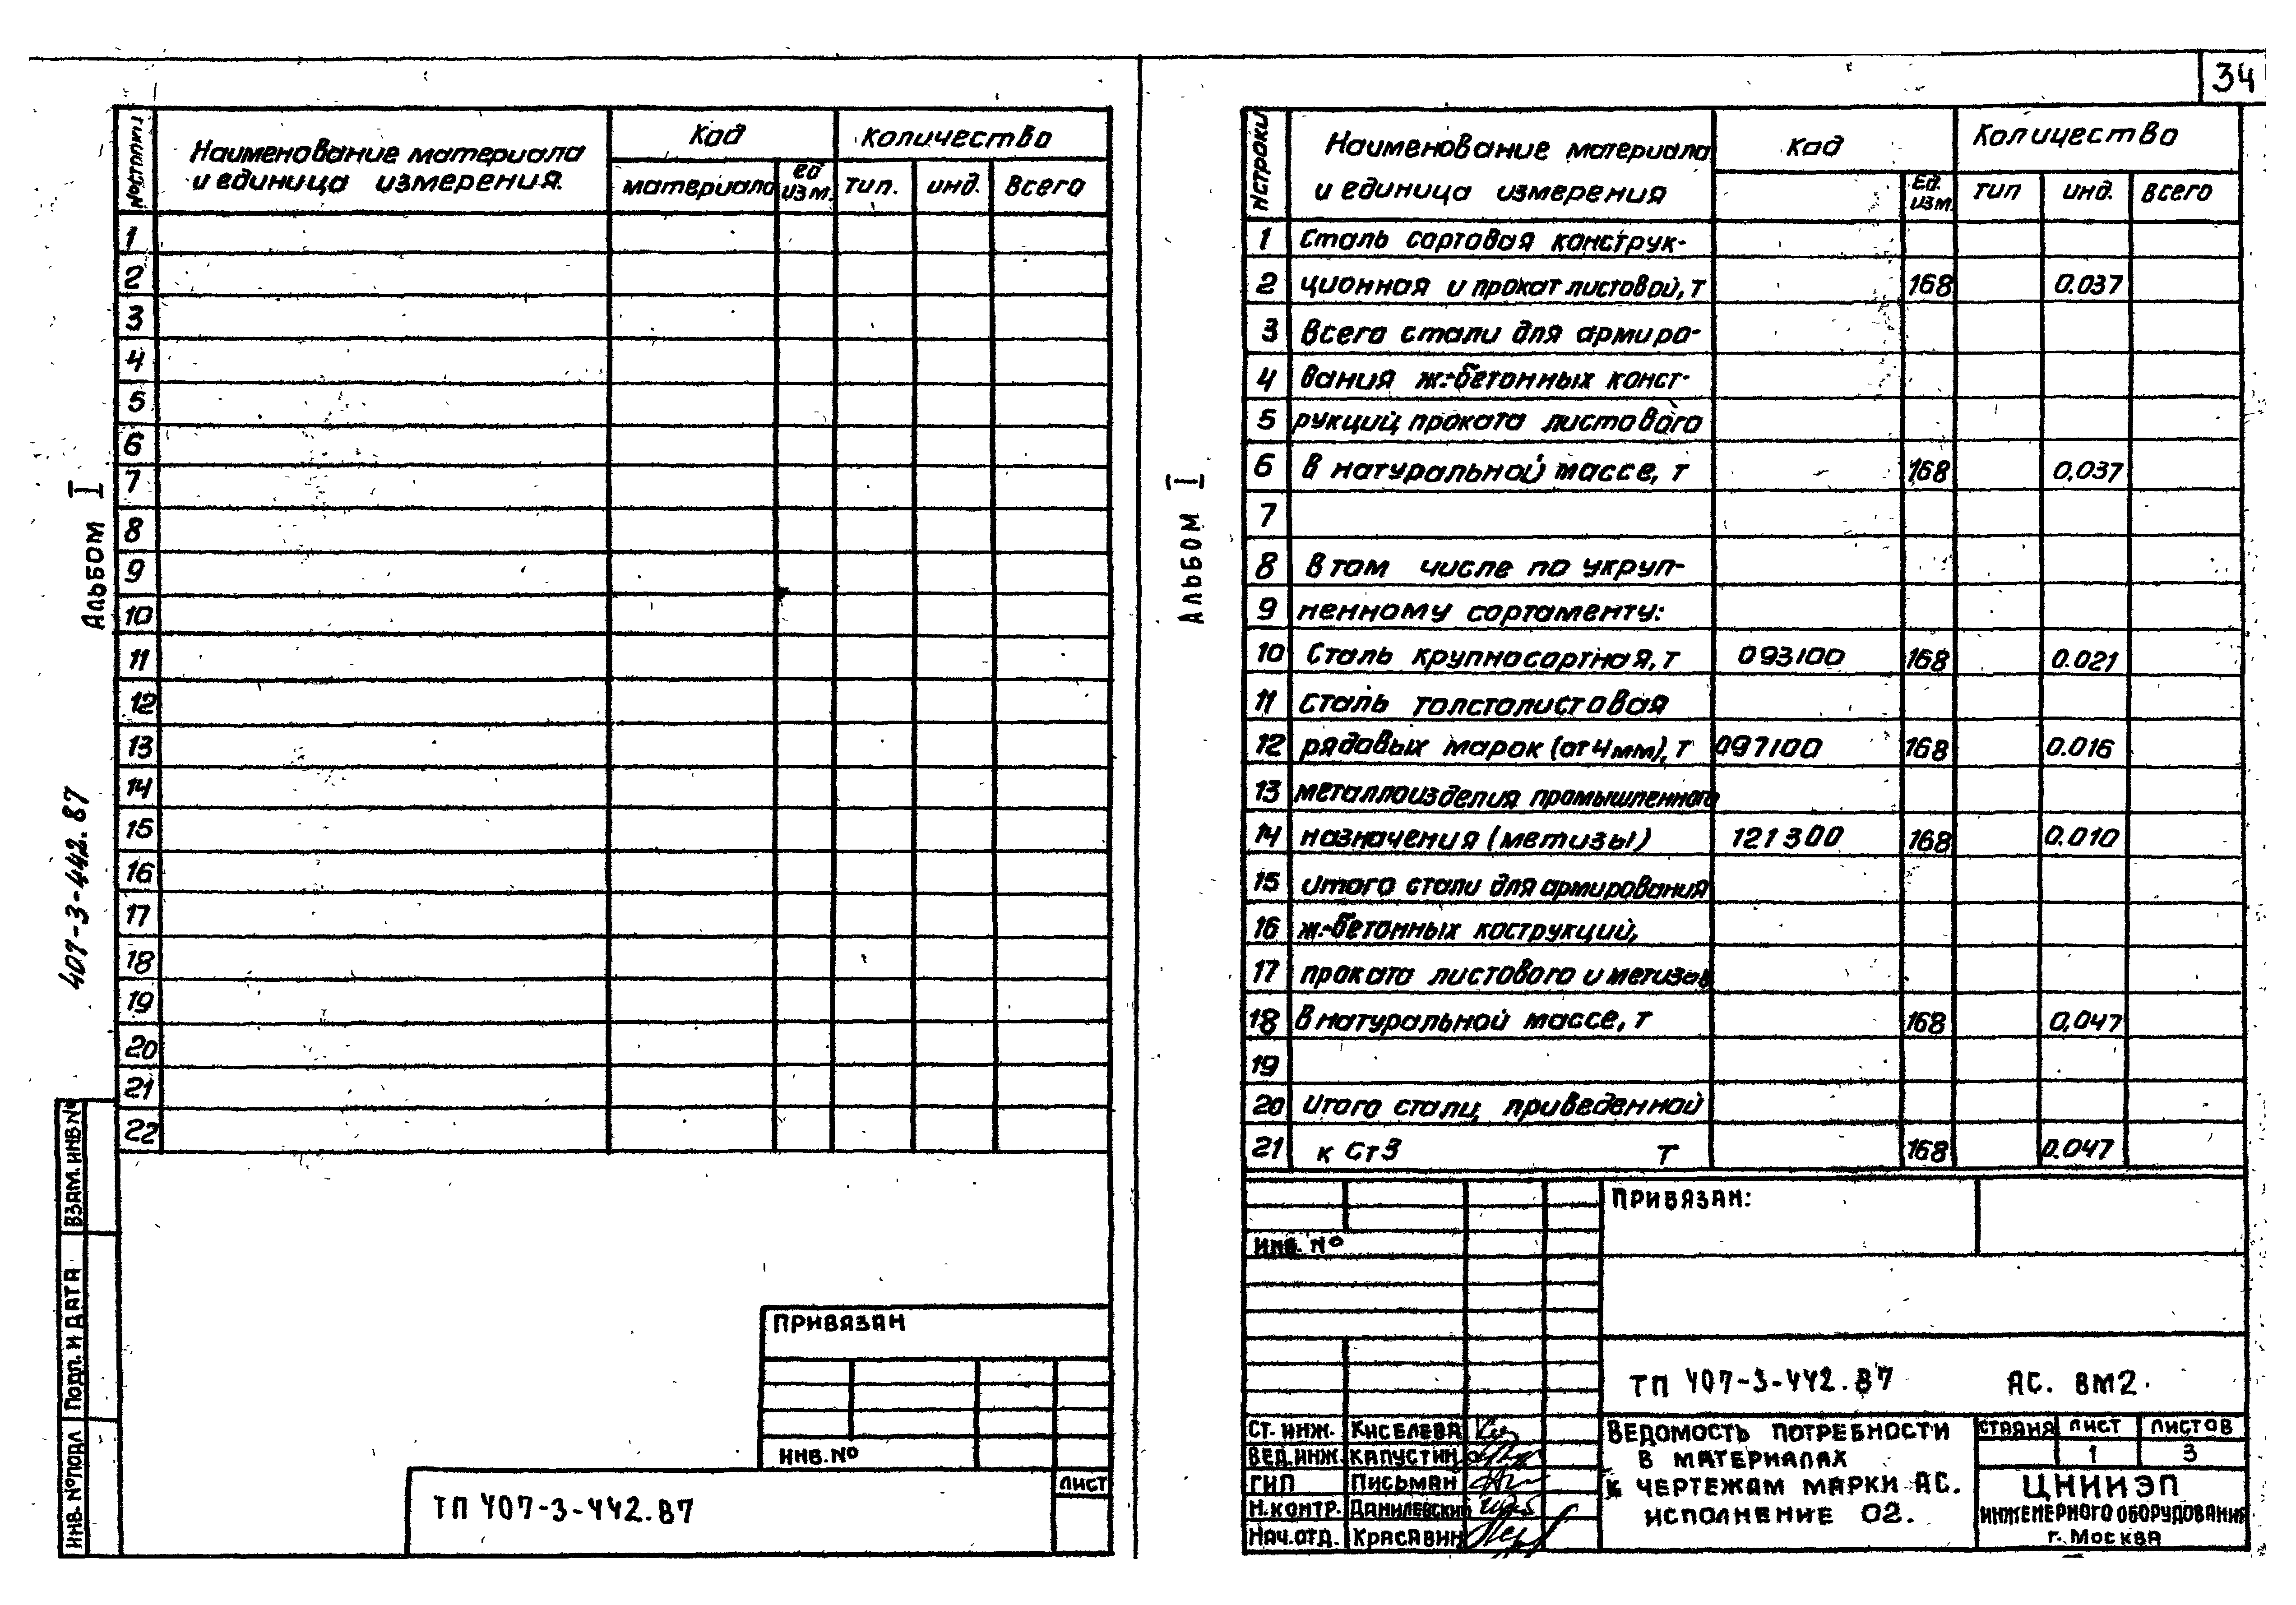 34
№ строки
Наименование материала
и единица измерения.
Код
материала
ед
изм.
количество
тип.
инд.
всего
1
2
3
4
5
6
7
8
9
10
11
12
13
14
15
16
17
18
19
20
21
22
Альбом I
407-3-442.87
ВЗАМ. ИНВ №
Подп. и дата
ИНВ. № подл
ПРИВЯЗАН
ИНВ. №
ТП 407-3-442.87
лист
Альбом I
N строки
Наименование материала
и единица измерения
Код
Ед.
изм.
Количество
тип
инд.
всего
1 Сталь сортовая конструк-
2 ционная и прокат листовой, т 168 0.037
3 Всего стали для армиро-
4 вания ж.-бетонных конст-
5 рукций, проката листового
6 в натуральной массе, т 168 0,037
7
8 В том числе по укруп-
9 ненному сортаменту:
10 Сталь крупносортная, т 093100 168 0.021
11 Сталь толстолистовая
12 рядовых марок (от 4 мм), т 097100 168 0.016
13 металлоизделия промышленного
14 назначения (метизы) 121300 168 0.010
15 итого стали для армирования
16 ж.-бетонных кострукций,
17 проката листового и метизов
18 в натуральной массе, т 168 0,047
19
20 Итого стали, приведенной
21 к Ст3 т 168 0.047
ПРИВЯЗАН:
ИНВ. №
ТП 407-3-442.87 АС. ВМ2.
Ст. инж. Киселева
Вед. инж. Капустин
ГИП Письман
Н. контр. Данилевский
Нач. отд. Красавин
Ведомость потребности
в материалах
к чертежам марки АС.
исполнение 02.
стадия лист листов
1 3
ЦНИИЭП
инженерного оборудования
г. Москва